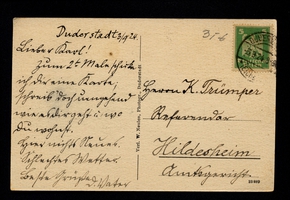 Duderstadt 3/9 24.
Lieber Karl!
Zum 2t Male schicke
ich dir eine Karte,
schreib doch umgehend
wie es dir geht u. wo
Du wohnst.
Hier nichts Neues.
Schlechtes Wetter.
Beste Grüße
d. Vater
Herrn K. Trümper
Referendar
Hildesheim
Amtsgericht